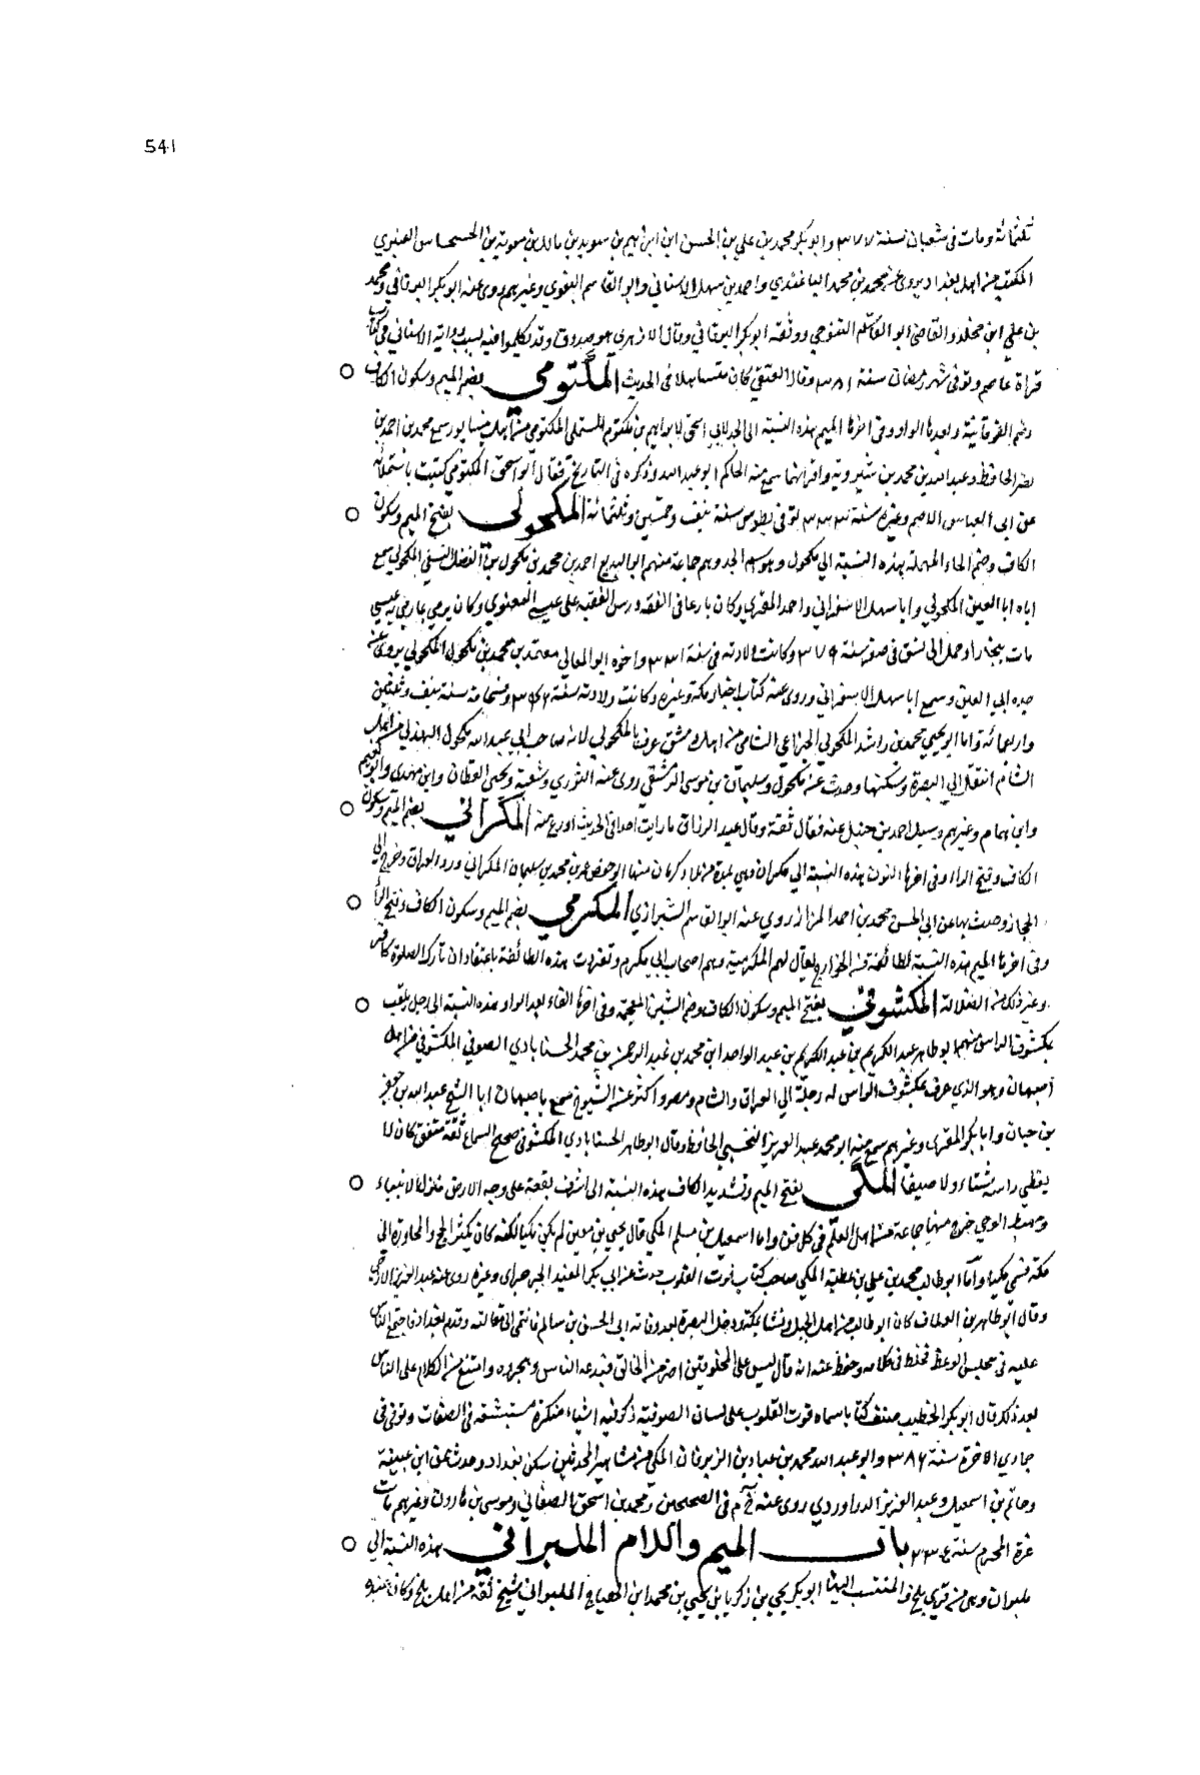 541
ثلثمائة ومات في شعبان سنة ٣٧٧ وابو بكر محمد بن علي بن الحسن ابن ابراهيم بن سويد بن مالك بن معوية بن الحسحاس العنبري
المكتب من اهل بغداد يروي عن محمد بن محمد الباغندي واحمد بن سهل الاشناني وابو القاسم البغوي وغيرهم روى عنه ابو بكر البرقاني ومحمد
بن علي ابن مخلد والقاضي ابو القاسم التنوخي ووثقه ابو بكر البرقاني وقال الازهري هو صدوق وقد تكلموا فيه لسبب روايته الاشناني في كتاب
قراة عاصم وتوفي شهر رمضان سنة ٣٨١ وقال العتيقي كان متساهلا في الحديث المكتومي بضم الميم وسكون الكاف
وضم الفوقانية وبعدها الواو وفي اخرها الميم هذه النسبة الى الجد لابي اسحق ابراهيم بن مكتوم المستملي المكتومي من اهل نيسابور سمع محمد بن احمد بن
نصر الحافظ وعبد الله بن محمد بن شيرويه واقرانهما سمع منه الحاكم ابو عبد الله وذكره في التاريخ فقال ابو اسحق المكتومي كتبت باستملائه
عن ابى العباس الاصم وغيره سنة ٣٣٣ توفي بطوس سنة نيف وخمسين وثلثمائة المكحولي بفتح الميم وسكون
الكاف وضم الحاء المهملة هذه النسبة الي مكحول وهو اسم الجد وهم جماعة منهم ابو البديع احمد بن محمد بن مكحول بن الفضل النسفي المكحولي سمع
اباه ابا المعين المكحولي وابا سهل الاسفرائني واحمد المقري وكان بارعا في الفقه ودرس الفقه على عيسى المعنوي وكان يرمي
مات ببخارا وحمل الى نسف في صفر سنة ٣٧٩ وكانت ولادته في سنة ٣٣١ واخوه ابو المعالي معتمد بن محمد بن مكحول المكحولي يروي عن
جده ابي المعين وسمع ابا سهل الاسفرائني وروى عنه كتاب اخبار مكة وغيره وكانت ولادته سنة ومات سنة نيف وثلثين
واربعمائة واما ابو يحيى محمد بن راشد المكحولي الخزاعي الشامي من اهل دمشق عرف بالمكحولي لانه صاحب ابي عبد الله مكحول الهذلي من اهل
الشام انتقل الي البصرة وسكنها وحدث عن مكحول وسليمان بن موسى الدمشقي روى عنه الثوري وشعبة ويحيى القطان وابن مهدي وابو نعيم
وابن همام وغيرهم وسئل احمد بن حنبل عنه فقال ثقة وقال عبد الرزاق ما رايت احدا في الحديث اورع منه المكراني بضم الميم وسكون
الكاف وفتح الراء وفى اخرها النون هذه النسبة الي مكران وهي بلدة من بلاد كرمان منها ابو حفص عمر بن محمد بن سليمان المكراني ورد العراق وخرج الى
الحجاز وحدث بها عن ابي الحسن محمد بن احمد البزاز روي عنه ابو القاسم الشيرازي المكرمي بضم الميم وسكون الكاف وفتح الراء
وفى اخرها الميم هذه النسبة لطائفة من الخوارج يقال لهم المكرمية وهم اصحاب ابي مكرم وتفردت هذه الطائفة باعتقاد ان تارك الصلوة كافر
وغير ذلك من الضلالة المكشوفي بفتح الميم وسكون الكاف وضم الشين المعجمة وفي اخرها الفاء بعد الواو هذه النسبة الى رجل يلقب
بمكشوف الراس منهم ابو طاهر عبد الكريم بن عبد الكريم بن عبد الواحد ابن محمد بن عبد الرحمن بن محمد الحسنابادي الصوفي المكشوفي من اهل
اصبهان وهو الذي عرف بمكشوف الراس له رحلة الي العراق والشام ومصر واكثر عن الشيوخ سمع باصبهان ابا الشيخ عبد الله بن جعفر
بن حيان وابا بكر المقري وغيرهم سمع منه ابو محمد عبد العزيز النخشبي الحافظ وقال ابو طاهر الحسنابادي المكشوفي صحيح السماع ثقة متفق كان لا
يغطي راسه شتاء ولا صيفا المكي بفتح الميم وتشديد الكاف هذه النسبة الى اشرف بقعة على وجه الارض منزل الانبياء
ومهبط الوحي خرج منها جماعة من اهل العلم في كل فن واما اسمعيل بن مسلم المكي قال يحيى بن معين لم يكن مكيا لكنه كان يكثر الحج والمجاورة الى
مكة فسمي مكيا واما ابو طالب محمد بن علي بن عطية المكي صاحب كتاب قوت القلوب حدث عن ابي بكر المفيد الجرجراي وغيره روى عنه عبد العزيز الازجي
وقال ابو طاهر بن العلاف كان ابو طالب من اهل الجبل ونشا بمكة ودخل البصرة بعد وفاة ابي الحسن بن سالم فانتمى الى مقالته وقدم بغداد فاجتمع الناس
عليه في مجلس الوعظ فخلط في كلامه وحفظ عنه انه قال ليس على المخلوقين اضر من الخالق فبدعه الناس وهجروه وامتنع من الكلام على الناس
بعد ذلك قال ابو بكر الخطيب صنف كتابا سماه قوت القلوب على لسان الصوفية ذكر فيه اشياء منكرة مستبشعة في الصفات وتوفي في
جمادي الاخرة سنة ٣٨٦ وابو عبد الله محمد بن عباد بن الزبرقان المكي من مشاهير المحدثين سكن بغداد وحدث بها عن ابن عيينة
وحاتم بن اسمعيل وعبد العزيز الدراوردي روى عنه خ م في الصحيحين ومحمد بن اسحق الصغاني وموسى بن هارون وغيرهم مات
غرة المحرم سنة ٢٣٤ باب الميم واللام الملبراني هذه النسبة الي
ملبران وهي من قري بلخ والمنتسب اليها ابو بكر يحيى بن زكريا بن يحيى بن محمد ابن الملبراني شيخ ثقة من اهل بلخ وكان عنده